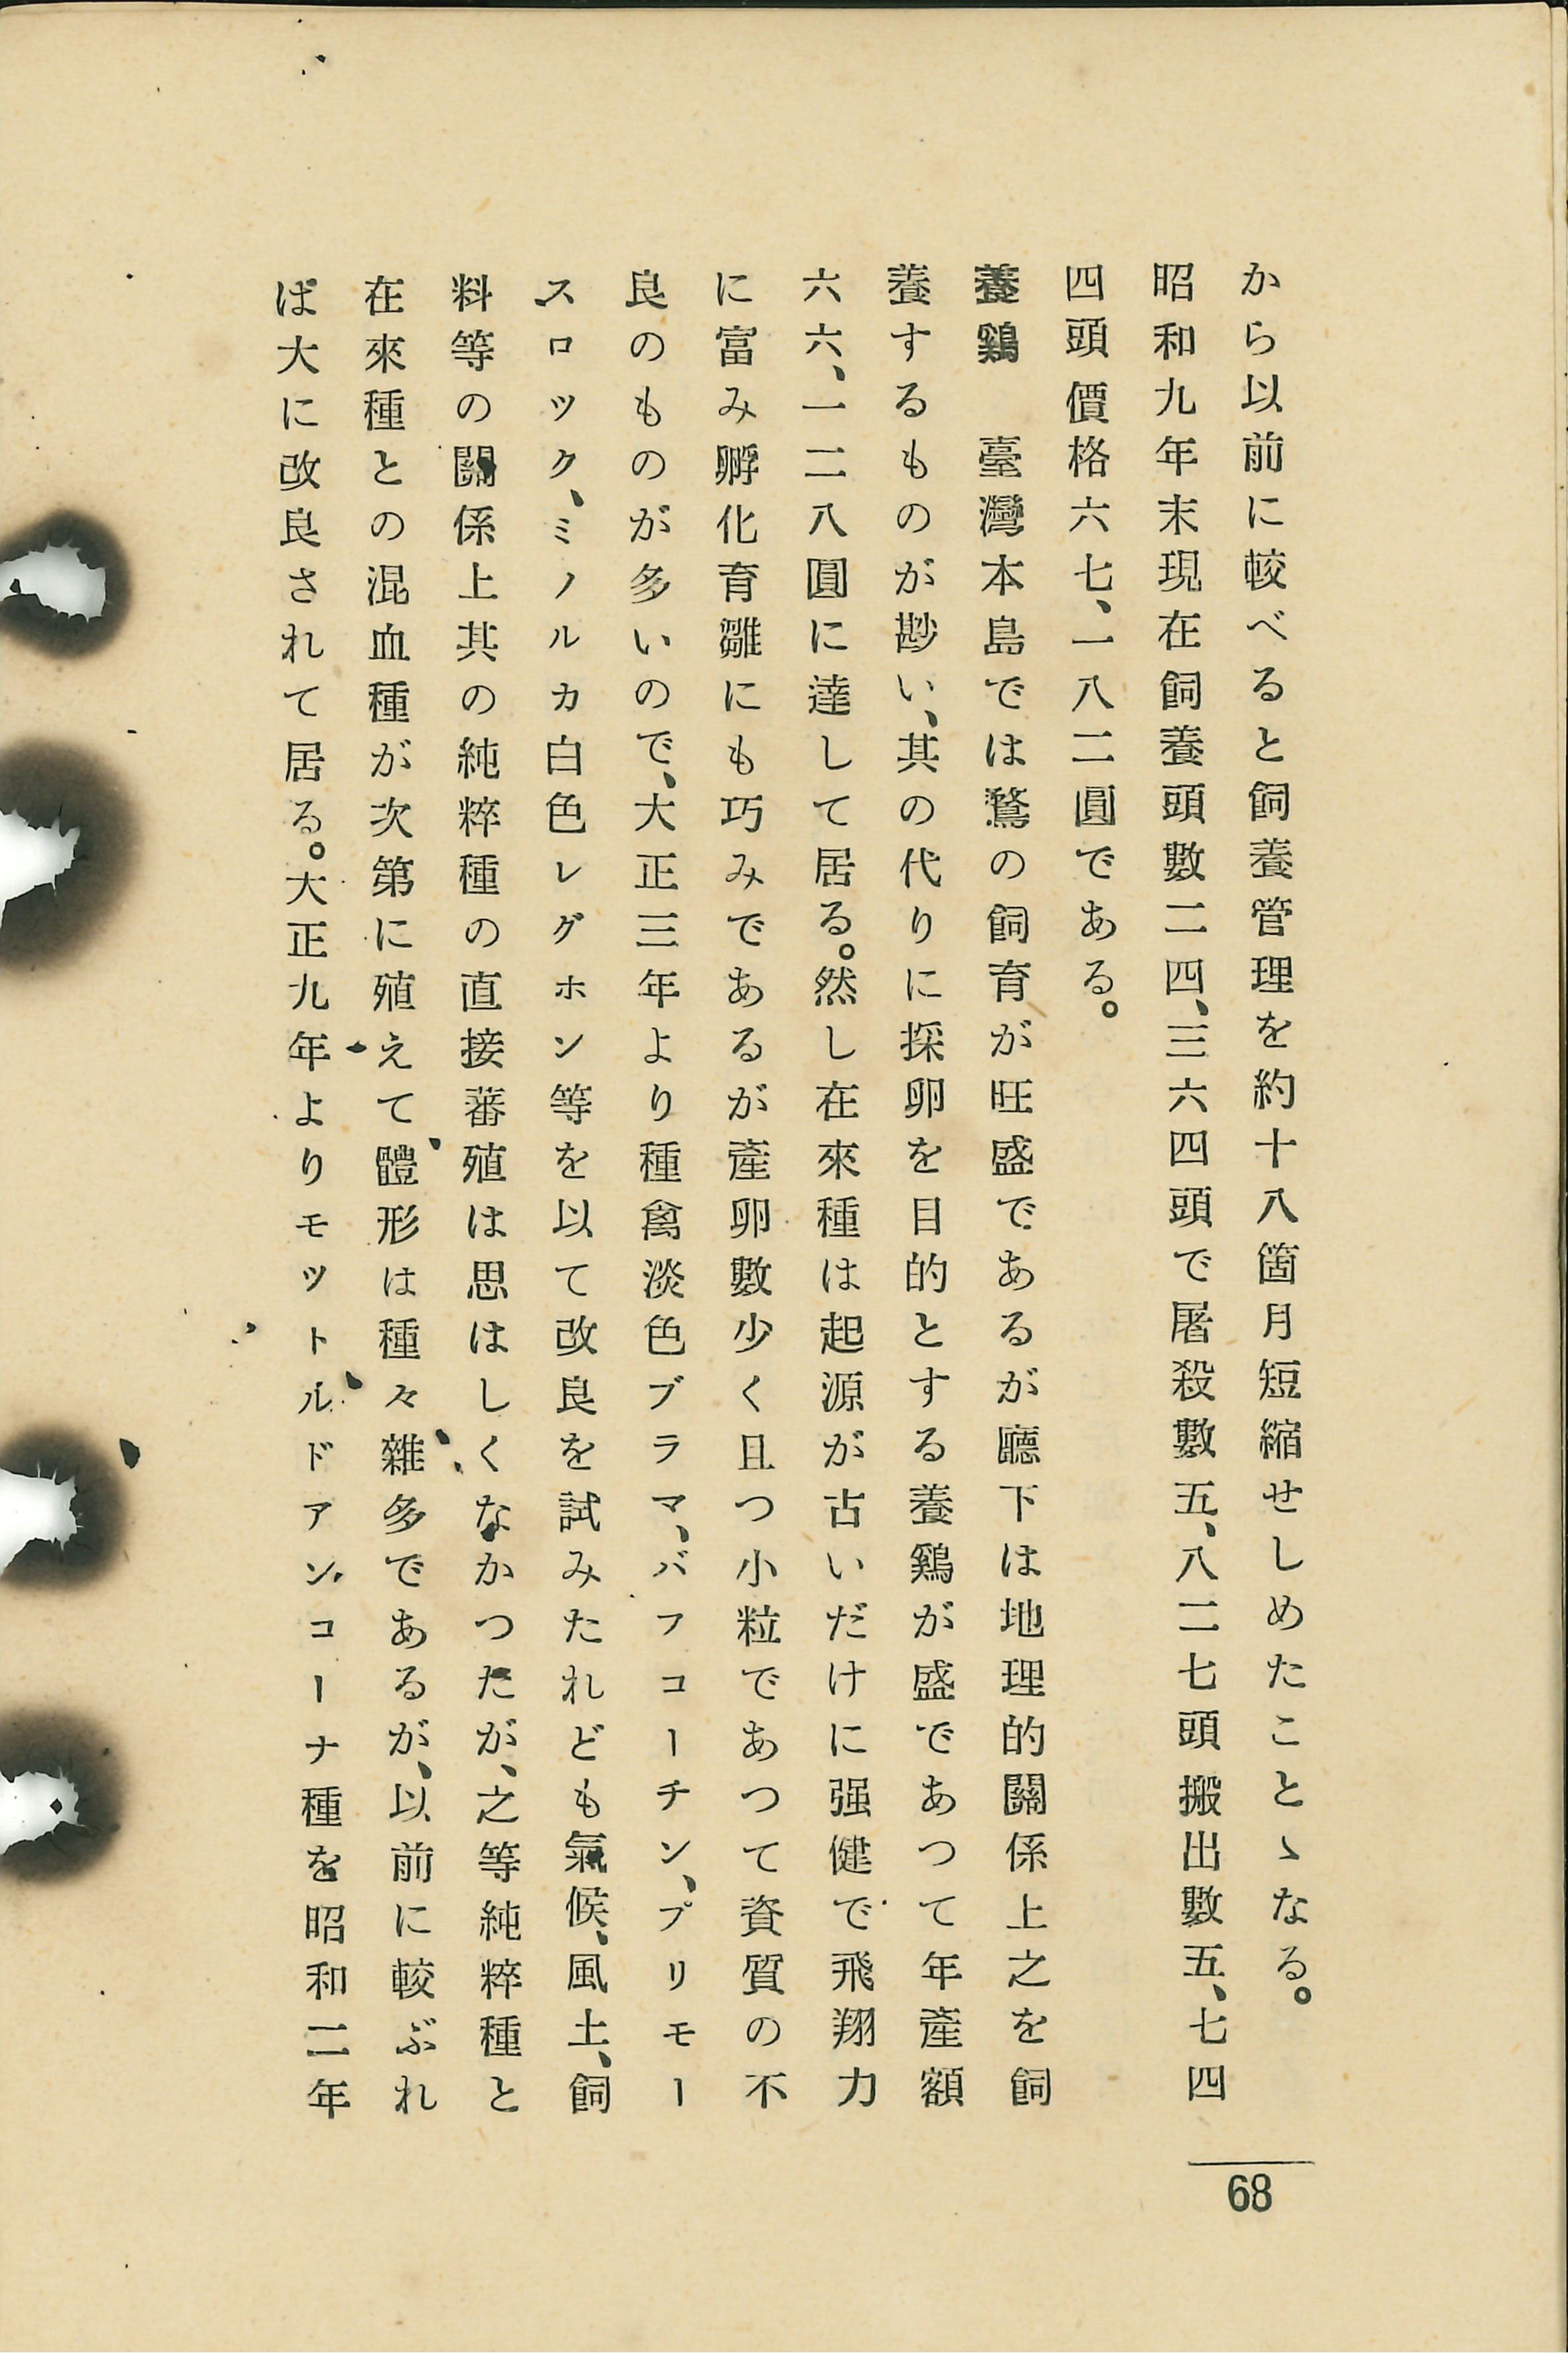 から以前に較べると飼養管理を約十八箇月短縮せしめたことゝなる。
昭和九年末現在飼養頭數二四、三六四頭で屠殺數五、八二七頭搬出數五、七四
四頭價格六七、一八二圓である。
養鷄　臺灣本島では鶩の飼育が旺盛であるが廳下は地理的關係上之を飼
養するものが尠い、其の代りに採卵を目的とする養鷄が盛であつて年產額
六六、一二八圓に達して居る。然し在來種は起源が古いだけに强健で飛翔力
に富み孵化育雛にも巧みであるが產卵數少く且つ小粒であつて資質の不
良のものが多いので、大正三年より種禽淡色ブラマ、バフコーチン、プリモー
スロック、ミノルカ白色レグホン等を以て改良を試みたれども氣候、風土、飼
料等の關係上其の純粹種の直接蕃殖は思はしくなかつたが、之等純粹種と
在來種との混血種が次第に殖えて體形は種々雜多であるが、以前に較ぶれ
ば大に改良されて居る。大正九年よりモットルドアンコーナ種を昭和二年
68